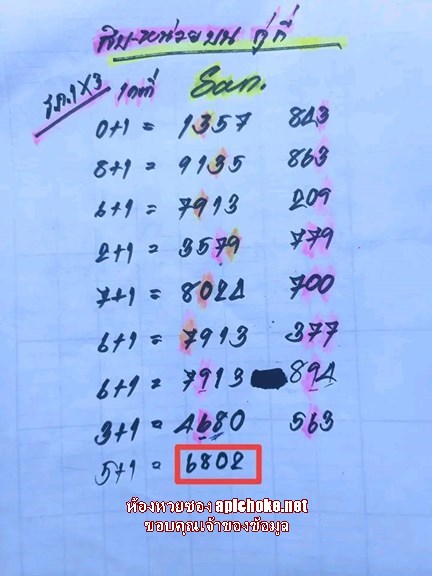 สิบ-หน่วยบน คู่คี่
รูด.1x3 ไทที่ Sอก.
0+1 = 1357 843
8+1 = 9135 863
6+1 = 7913 209
2+1 = 3579 779
7+1 = 8024 700
6+1 = 7913 377
6+1 = 7913 894
3+1 = 4680 563
5+1 = 6802
ห้องหวยซอง apichoke.net
ขอบคุณเจ้าของข้อมูล